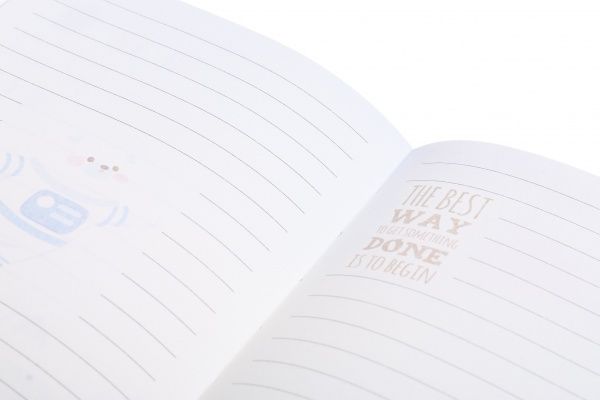 THE BEST
WAY
TO GET SOMETHING
DONE
IS TO BEGIN